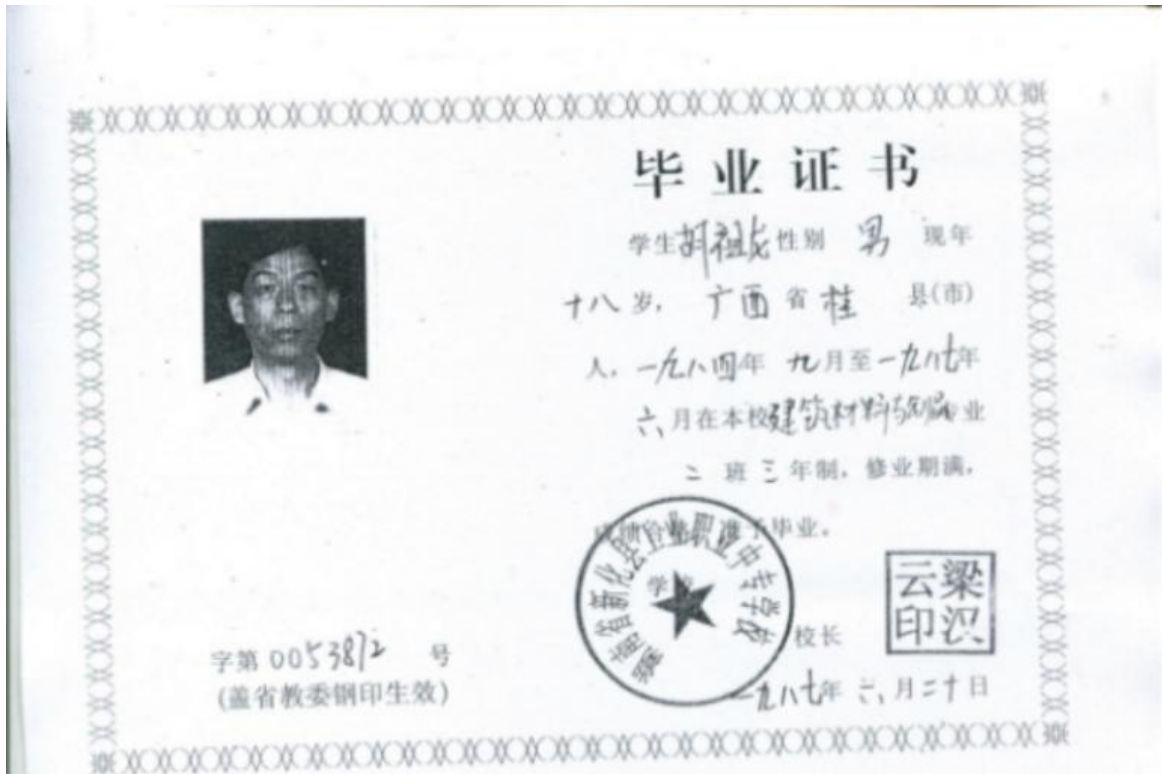 毕业证书
学生胡祖龙性别 男 现年
十八岁，广西省桂 县(市)
人，一九八四年 九月至一九八七年
六月在本校建筑材料与 专业
二 班三年制，修业期满，
成绩合格 准予毕业。
学校
湖南省新化县 职业中专学校
校长
梁沢云印
一九八七年 六月二十日
字第 0053872 号
(盖省教委钢印生效)